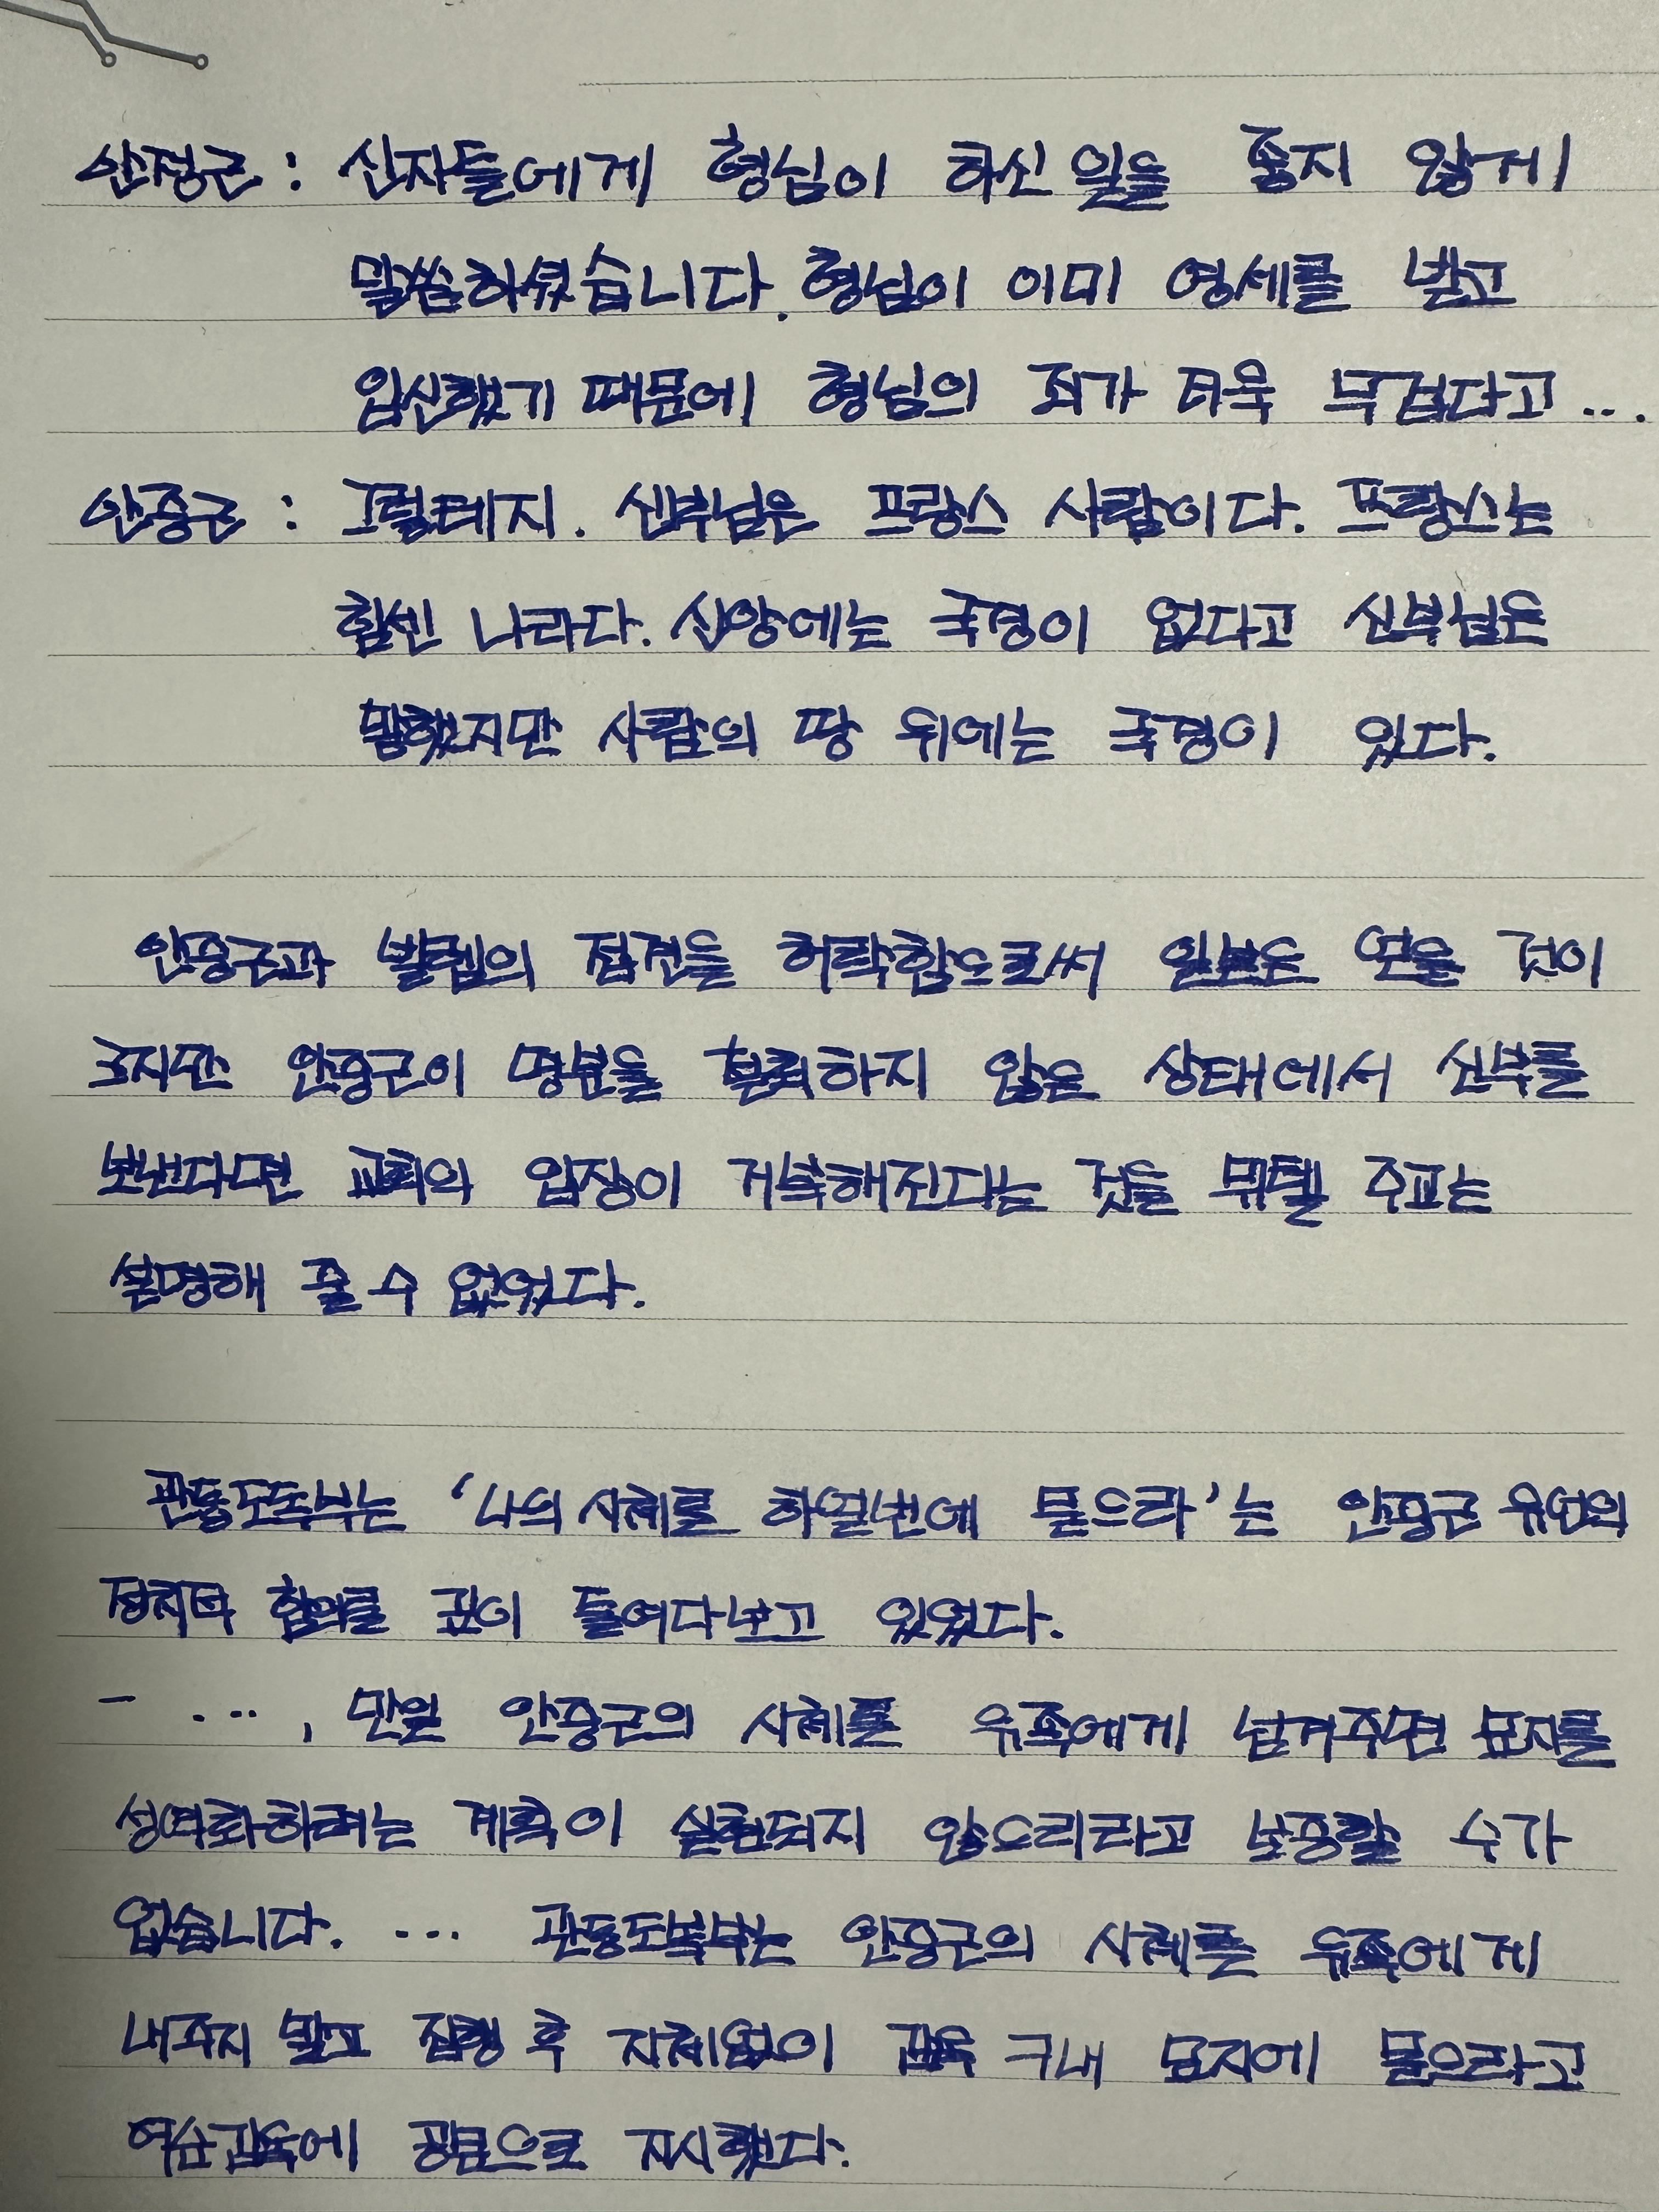 안정근 : 신자들에게 형님이 하신 일을 좋지 않게
말씀하셨습니다. 형님이 이미 영세를 받고
입신했기 때문에 형님의 죄가 더욱 무겁다고...
안중근 : 그럴테지. 신부님은 프랑스 사람이다. 프랑스는
힘센 나라다. 신앙에는 국경이 없다고 신부님은
말했지만 사람의 땅 위에는 국경이 있다.
안중근과 빌렘의 접견을 허락함으로써 일본은 얻을 것이
크지만 안중근이 명분을 철회하지 않은 상태에서 신부를
보낸다면 교회의 입장이 거북해진다는 것을 뮈텔 주교는
설명해 줄 수 없었다.
관동도독부는 '나의 시체를 하얼빈에 묻으라'는 안중근 유언의
정치적 함의를 깊이 들여다보고 있었다.
- ..., 만일 안중근의 사체를 유족에게 넘겨주면 묘지를
성역화하려는 계획이 실현되지 않으리라고 보증할 수가
없습니다. ... 관동도독부는 안중근의 사체를 유족에게
내주지 말고 집행 후 지체없이 감옥 구내 묘지에 묻으라고
여순감옥에 공문으로 지시했다.